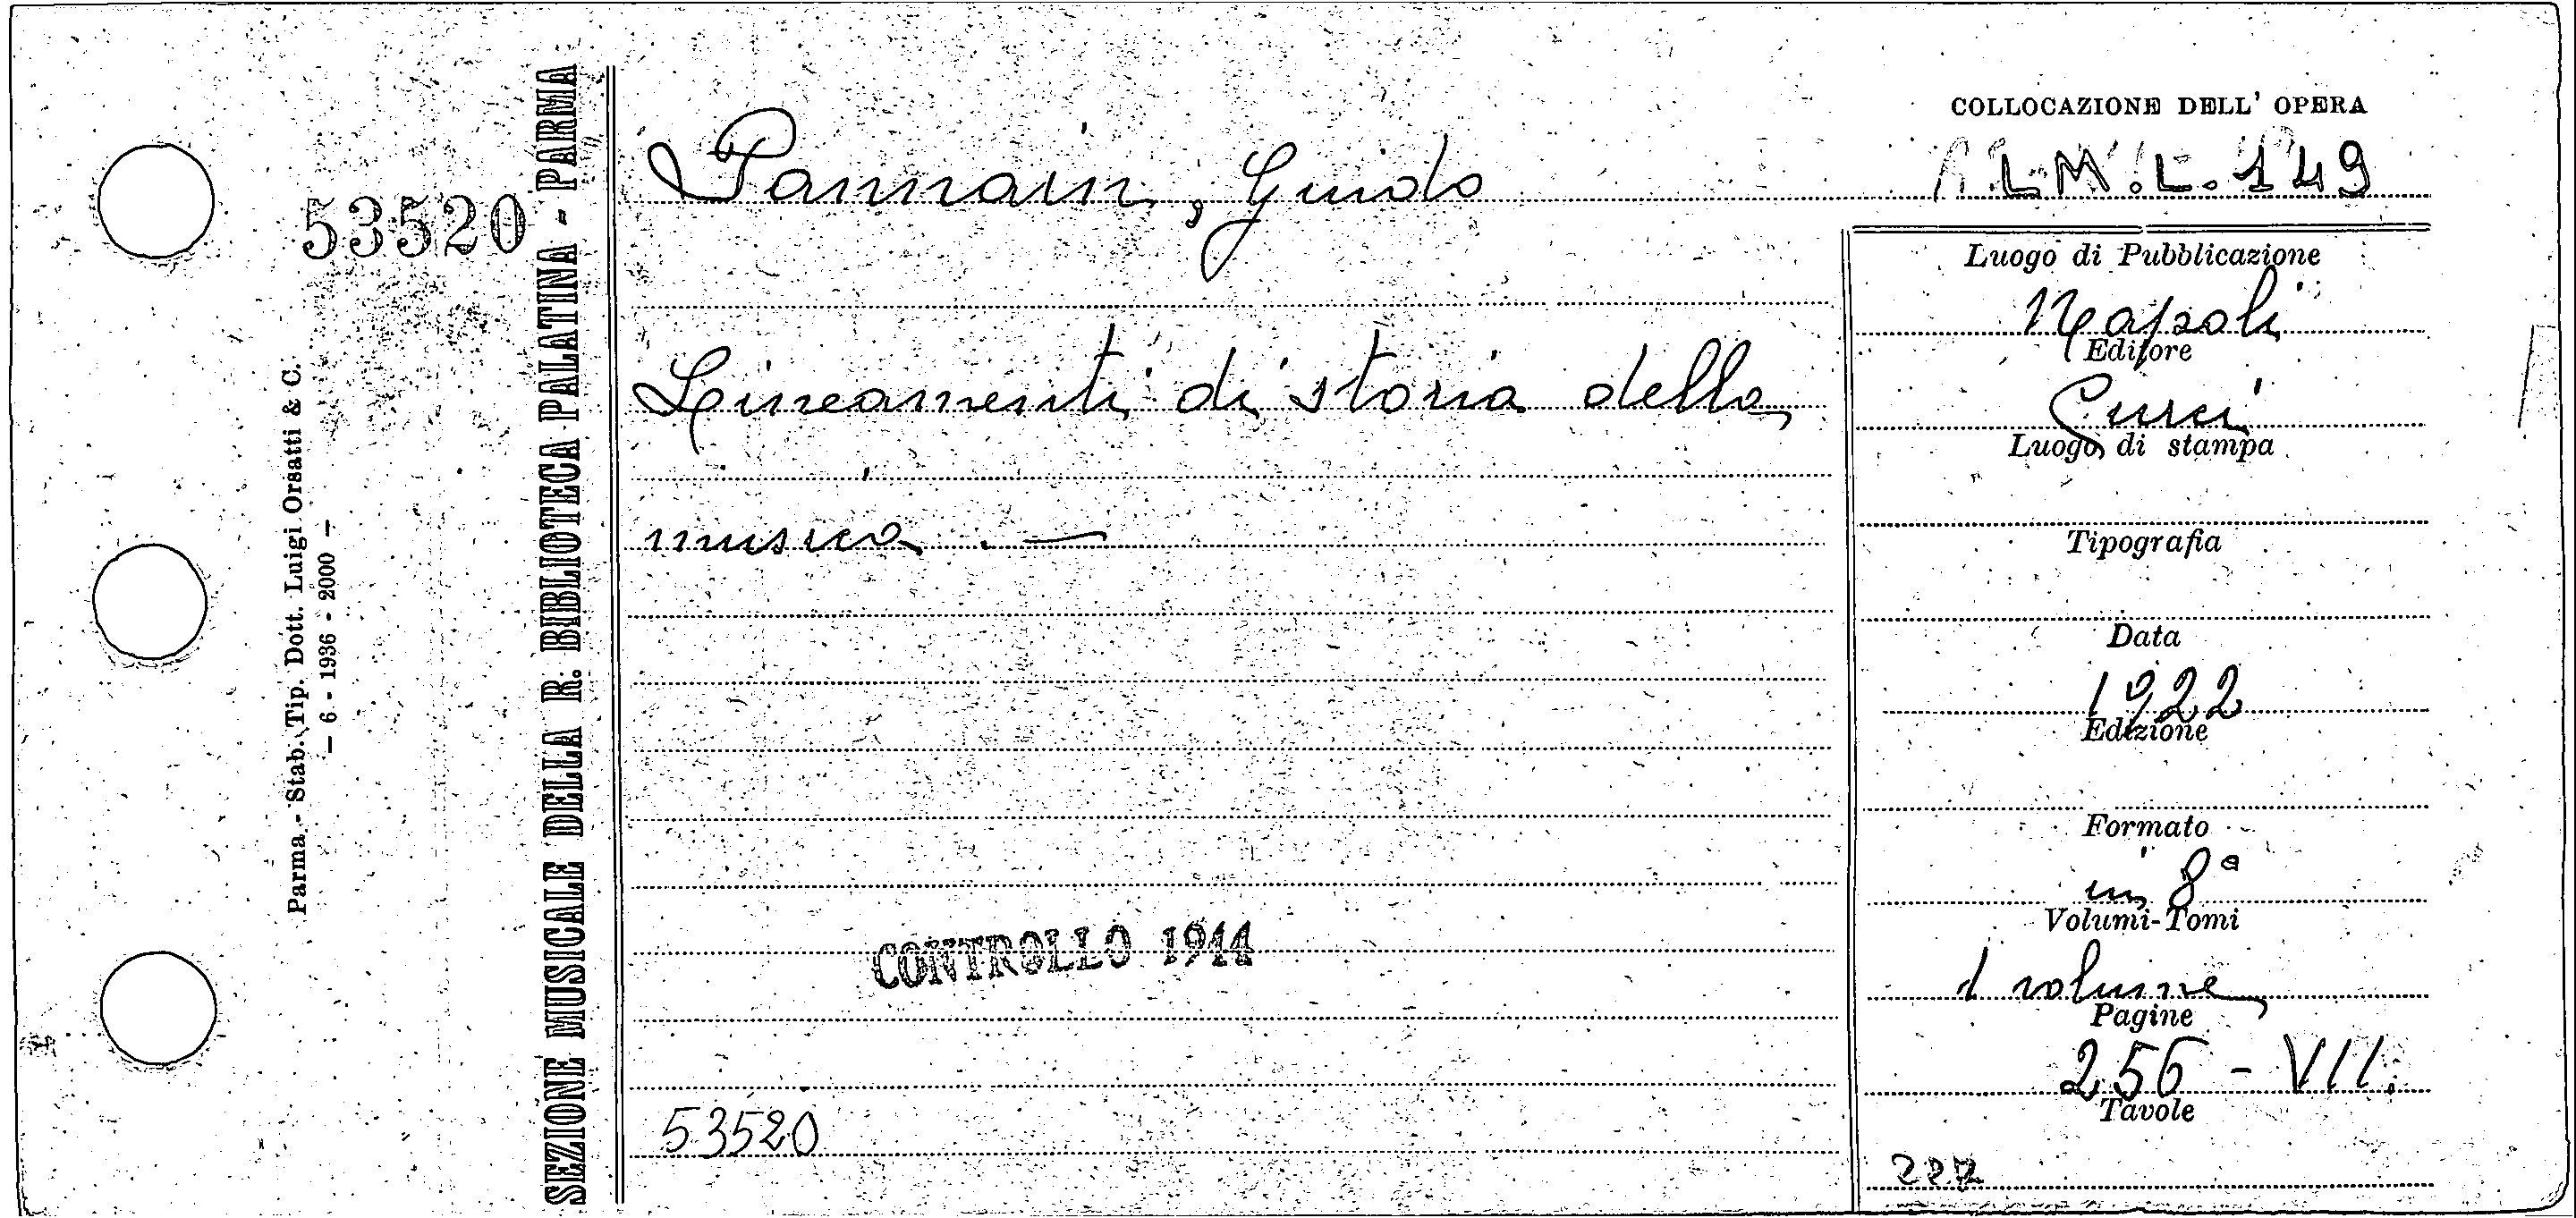 53520
Parma - Stab. Tip. Dott. Luigi Orsatti & C.
— 6 - 1936 - 2000 —
SEZIONE MUSICALE DELLA R. BIBLIOTECA PALATINA - PARMA
Pannain, Guido
Lineamenti di storia della
musica. —
CONTROLLO 1944
53520
COLLOCAZIONE DELL' OPERA
L M. L. 149
Luogo di Pubblicazione
Napoli
Editore
Curci
Luogo di stampa
Tipografia
Data
1922
Edizione
Formato
in 8°
Volumi-Tomi
1 volume
Pagine
256 - VII.
Tavole